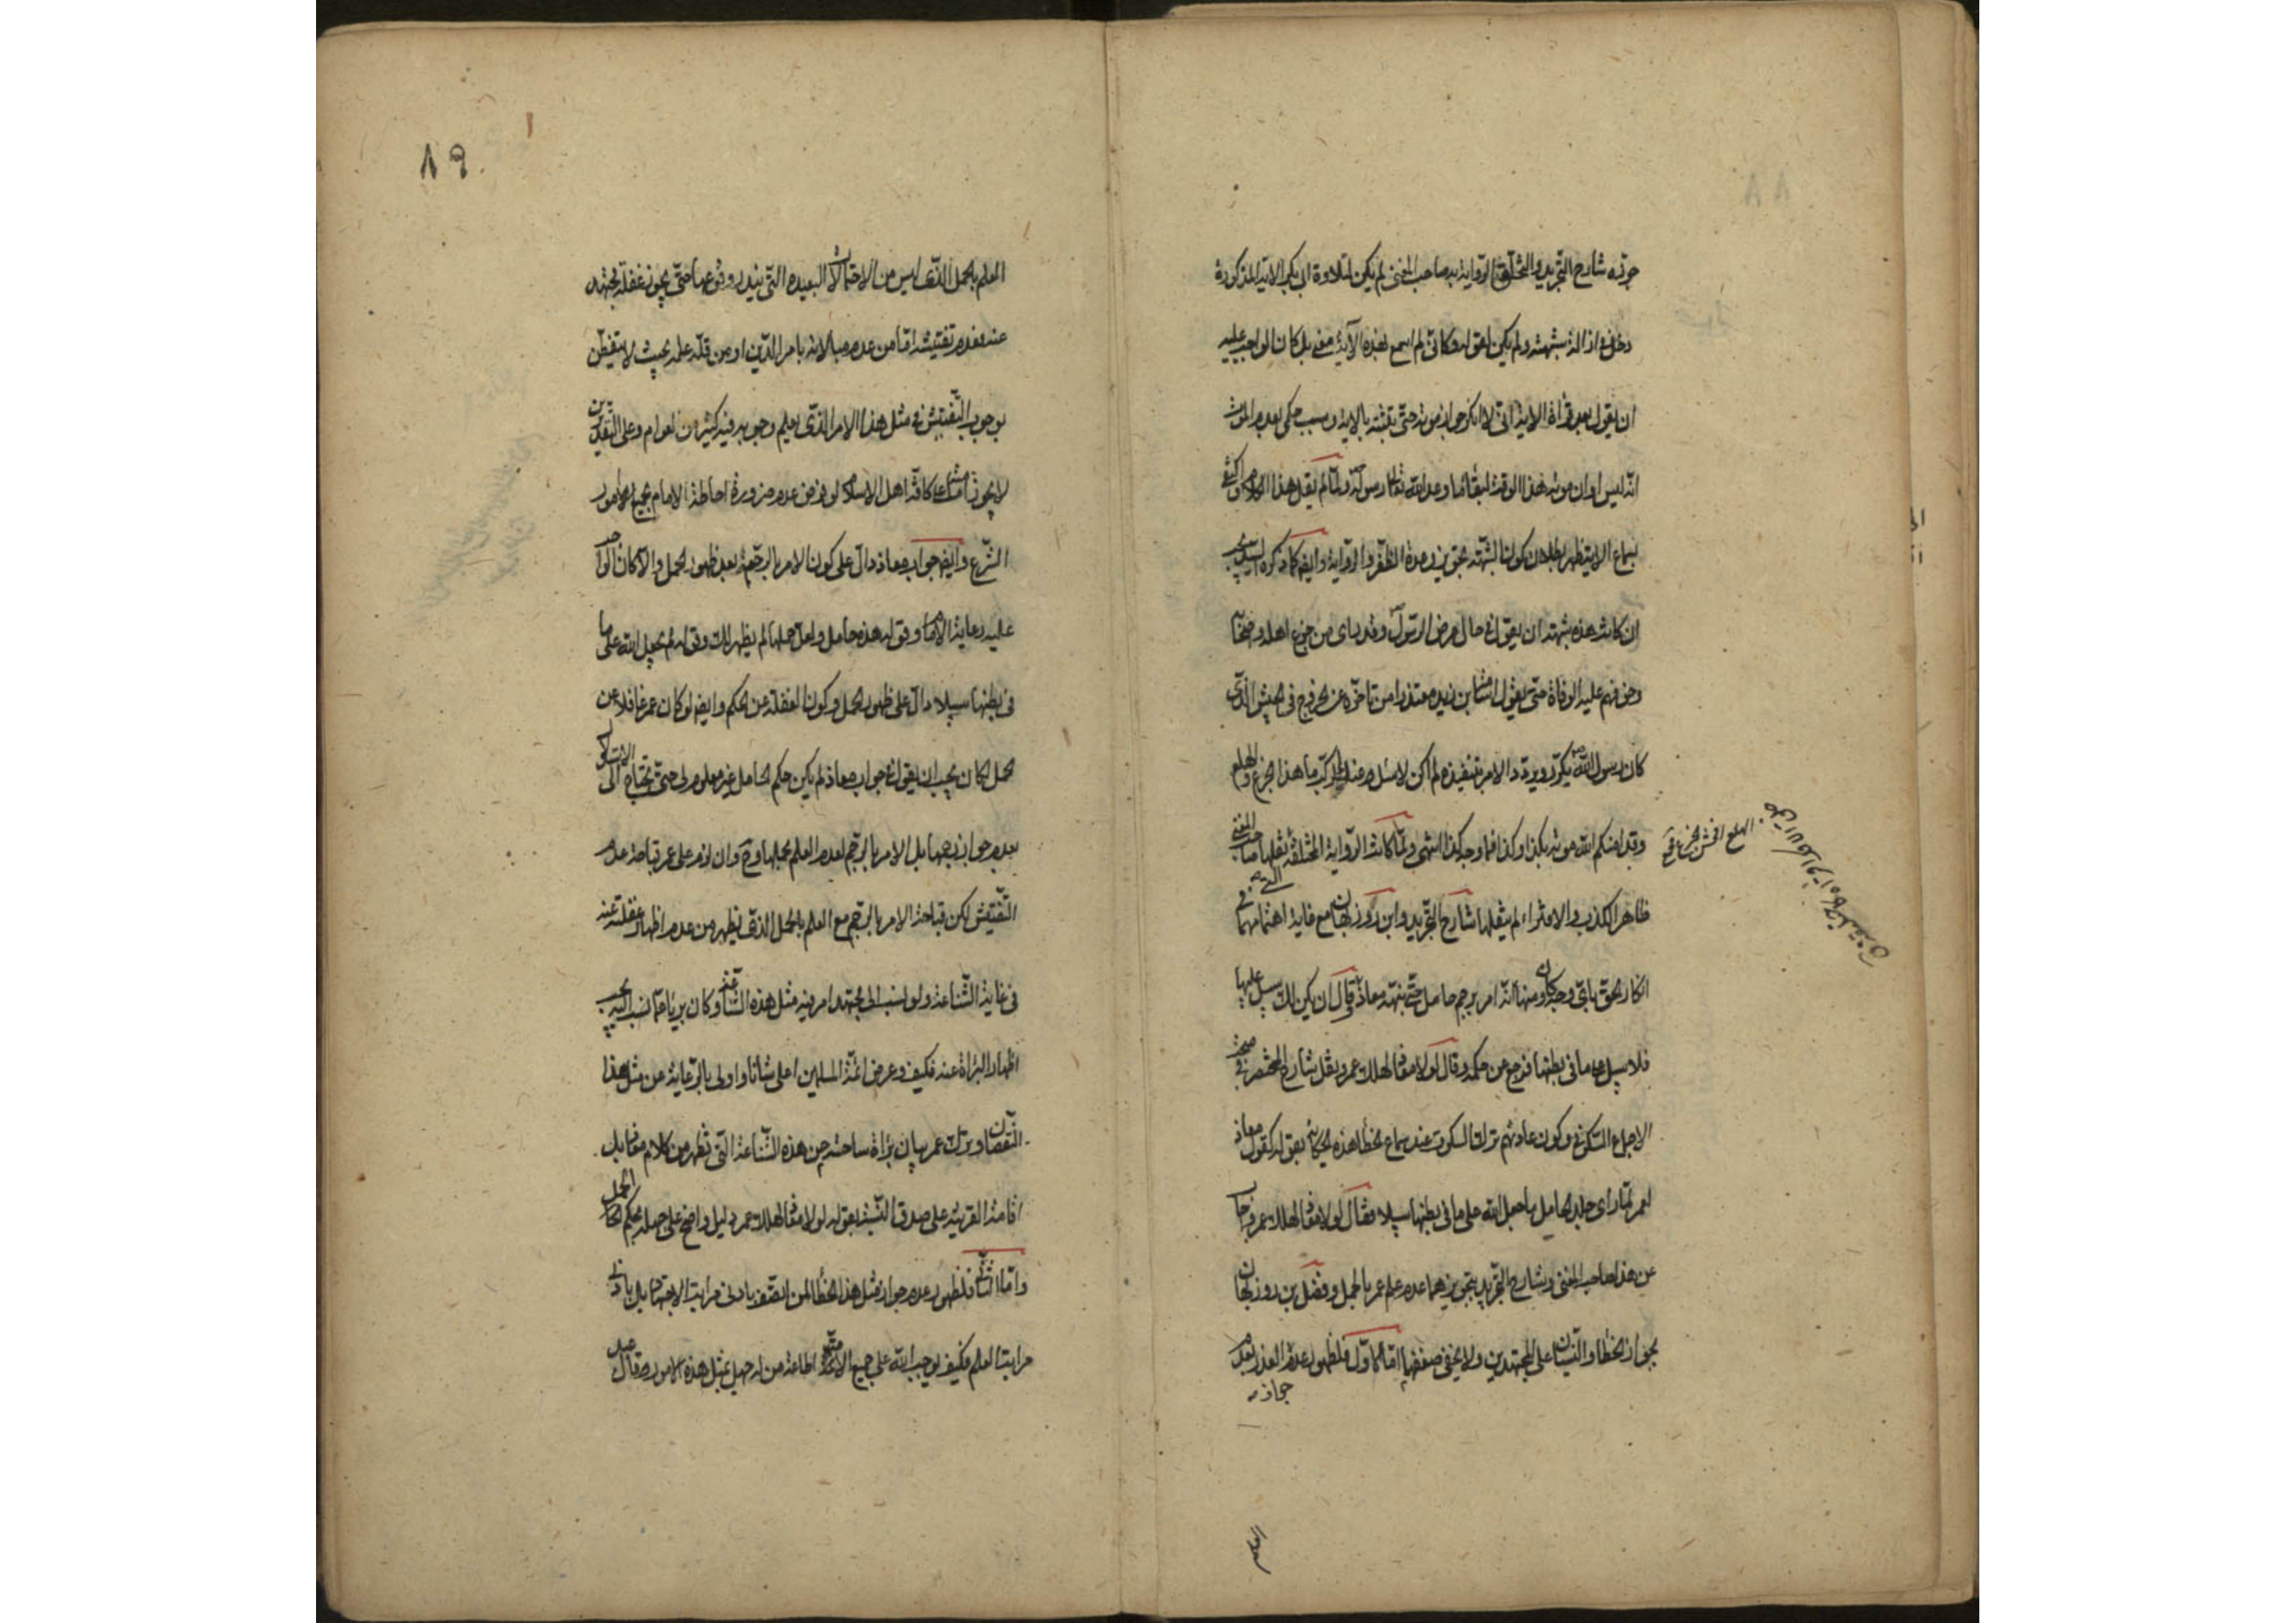 جوزه شارح التجريد والمختلق الرواية به صاحب المغني لم يكن لتلاوة ابي بكر الاية المذكورة
دخل في ازالة شبهته ولم يكن لقوله فكاني لم اسمع لهذه الآية معنى بل كان الواجب عليه
ان يقول بعد قراءة الاية اني لا انكر جواز موته حتى تثبته بالاية وسبب حكمي بعدم الموت
انه ليس اوان موته هذا الوقت لبقاء ما وعد الله تعالى رسوله ولما لم يقل هذا الكلام واكتفى
بسماع الاية يظهر بطلان كون الشبهة بتجويز وحدة الرواية وايضا كما ذكره السيد
ان كانت هذه شبهته ان يقول في حال مرض الرسول وقد راى من جزع اهله وصحابه
وخوفهم عليه الوفاة حتى يقول اسامة بن زيد معتذرا من تاخره عن الخروج في الجيش الذي
كان رسول الله يكرر ويردد الامر بتنفيذه لم اكن لاسئل عنك الركب ما هذا الجزع والهلع
وقد امنكم الله موته بكذا وكذا فما وجه كذا انتهى ولما كانت الرواية المختلقة نقلها صاحب المغني
ظاهر الكذب والافتراء لم ينقلها شارح التجريد وابن روزبهان مع غاية اهتمامهما في
انكار الحق باي وجه كان ومنها انه امر برجم حامل حتى نبهه معاذ وقال ان يكن لك سبيل عليها
فلا سبيل على ما في بطنها فرجع عن حكمه وقال لولا معاذ لهلك عمر ونقل شارح المختصر في مبحث
الاجماع السكوتي وكون عادتهم ترك السكوت عند سماع الخطأ هذه الحكاية بقوله كقول معاذ
لعمر لما راى جلد الحامل ما جعل الله على ما في بطنها سبيلا فقال لولا معاذ لهلك عمر واجاب
عن هذا صاحب المغني وشارح التجريد بتجويزهما عدم علم عمر بالحمل وفضل بن روزبهان
بجواز الخطا والنسيان على المجتهدين ولا يخفى ضعفها اما الاول فلظهور عدم العذر لعدم
جواز
الهلع افحش الجزع
العلم
٨٩
العلم بالحمل الذي ليس من الاحتمالات البعيدة التي يندر وقوعها حتى يجوز غفلة مجتهد
عنه فعدم تفتيشه اما من عدم مبالاته بامر الدين او من قلة علمه بحيث لا يتفطن
بوجوب التفتيش في مثل هذا الامر الذي يعلم وجوبه فيه كثير من العوام وعلى التقديرين
لا يجوز كافة اهل الاسلام لو فرض عدم ضرورة احاطة الامام بجميع امور
الشرع وايضا جواب معاذ دال على كون الامر بالرجم بعد ظهور الحمل والا كان الواجب
عليه رعاية الادب وقوله هذه حامل ولعل حملها لم يظهر لك وقوله لم يجعل الله على ما
في بطنها سبيلا دال على ظهور الحمل وكون الغفلة عن الحكم وايضا لو كان عمر غافلا عن
الحمل لكان يجب ان يقول في جواب معاذ لم يكن حكم الحامل غير معلوم لي حتى تحتاج الى الاستدلال
بعدم جواز رجمها بل الامر بالرجم لعدم العلم بحملها وح وان لزم على عمر قباحة عدم
التفتيش لكن قباحة الامر بالرجم مع العلم بالحمل الذي يظهر من عدم اظهار غفلته عنه
في غاية الشناعة ولو نسب الى مجتهد امر فيه مثل هذه الشناعة وكان بريئا عما نسب اليه يجب
اظهار البراءة عنه فكيف وعرض ائمة المسلمين اعلى شانا واولى بالرعاية عن مثل هذا
النقصان وترك عمر بيان براءة ساحته من هذه الشناعة التي تظهر من كلام معاذ بل
اقامة القرينة على صدق النسبة بقوله لولا معاذ لهلك عمر دليل واضح على جهله بحكم الحامل
واما الثاني فلظهور عدم جواز مثل هذا الخطأ لمن اتصف بادنى مراتب الاجتهاد بل بادنى
مراتب العلم فكيف يوجب الله على جميع الامة اطاعة من له جهل بمثل هذه الامور وقال